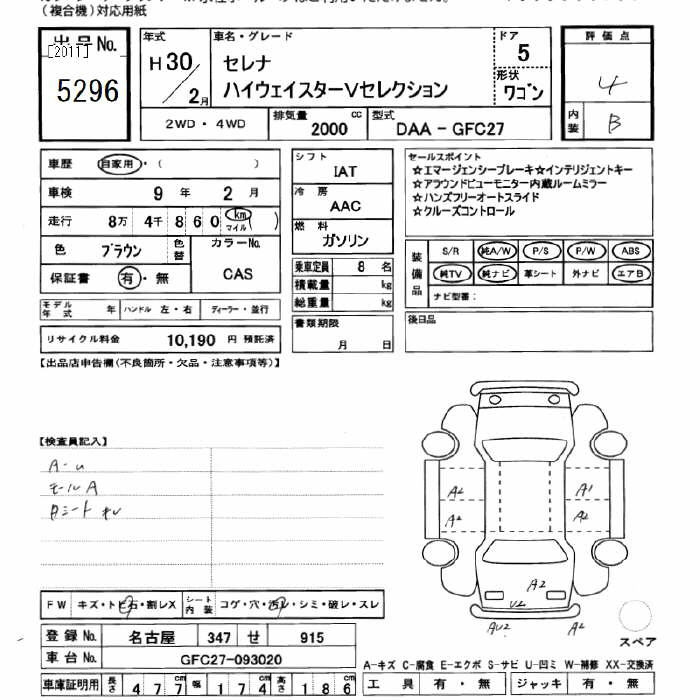 (複合機)対応用紙
出品No.
[2011]
5296
年式
H30/2月
車名・グレード
セレナ
ハイウェイスターVセレクション
ドア
5
形状
ワゴン
評価点
4
内装
B
2WD・4WD
排気量
2000
cc
型式
DAA-GFC27
車歴
自家用・( )
車検
9年2月
走行
8万4千860(km マイル)
色
ブラウン
色替
カラーNo.
CAS
保証書
有・無
シフト
IAT
冷房
AAC
燃料
ガソリン
乗車定員 8名
積載量 kg
総重量 kg
書類期限
月 日
セールスポイント
☆エマージェンシーブレーキ☆インテリジェントキー
☆アラウンドビューモニター内蔵ルームミラー
☆ハンズフリーオートスライド
☆クルーズコントロール
装備品
S/R 純A/W P/S P/W ABS
純TV 純ナビ 革シート 外ナビ エアB
ナビ型番:
後日品
モデル年式 年 ハンドル 左・右 ディーラー・並行
リサイクル料金 10,190 円 預託済
【出品店申告欄(不良箇所・欠品・注意事項等)】
【検査員記入】
モールA
A2 A1
A2 A2
A2
V2
AU2 A2
FW キズ・トビ石・割レX シート内装 コゲ・穴・汚レ・シミ・破レ・スレ
登録No. 名古屋 347 せ 915
車台No. GFC27-093020
車庫証明用 長さ 477 幅 174 高さ 186
スペア
A-キズ C-腐食 E-エクボ S-サビ U-凹ミ W-補修 XX-交換済
工具 有・無 ジャッキ 有・無